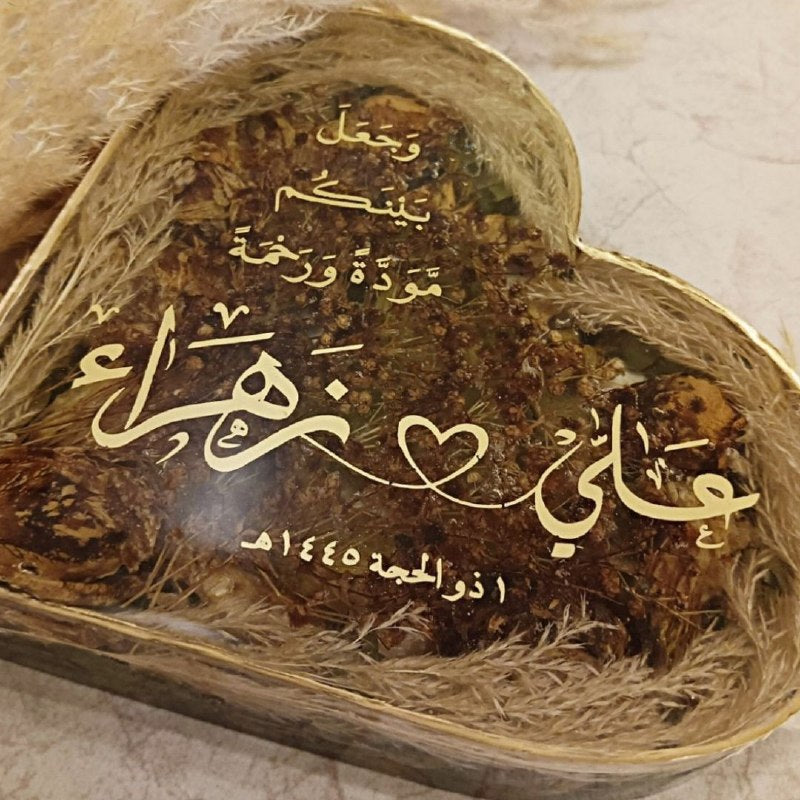 وَجَعَلَ
بَيْنَكُم
مَّوَدَّةً وَرَحْمَةً
علي زهراء
١ ذو الحجة ١٤٤٥هـ